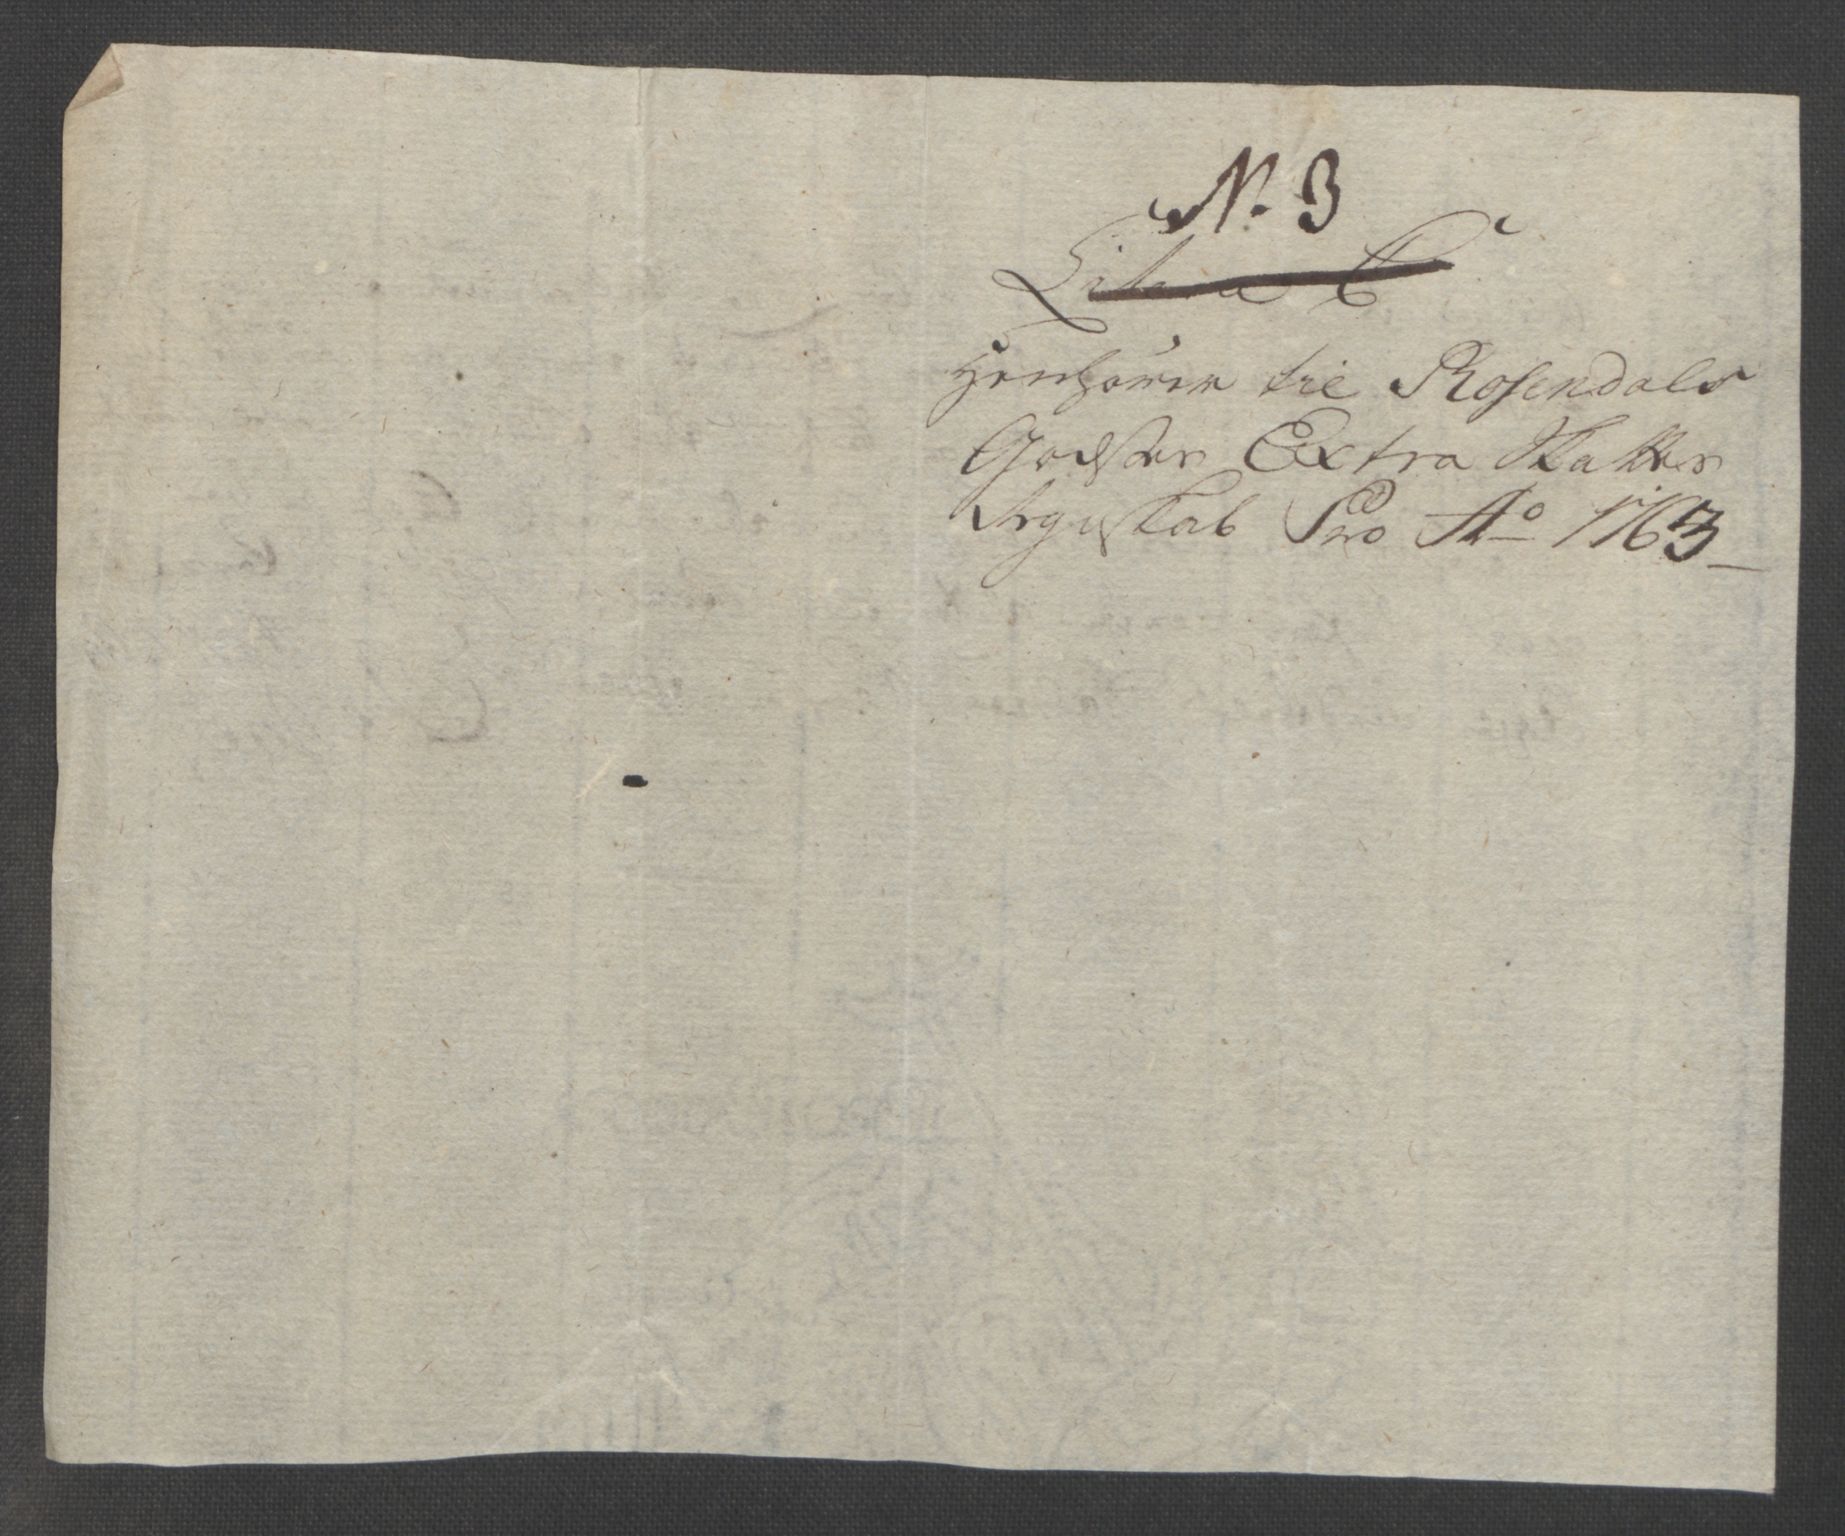 N. 3
Litera C
Henhörer til Rosendals
Godses Extra Skattes
Regnskab Pro Ao 1763